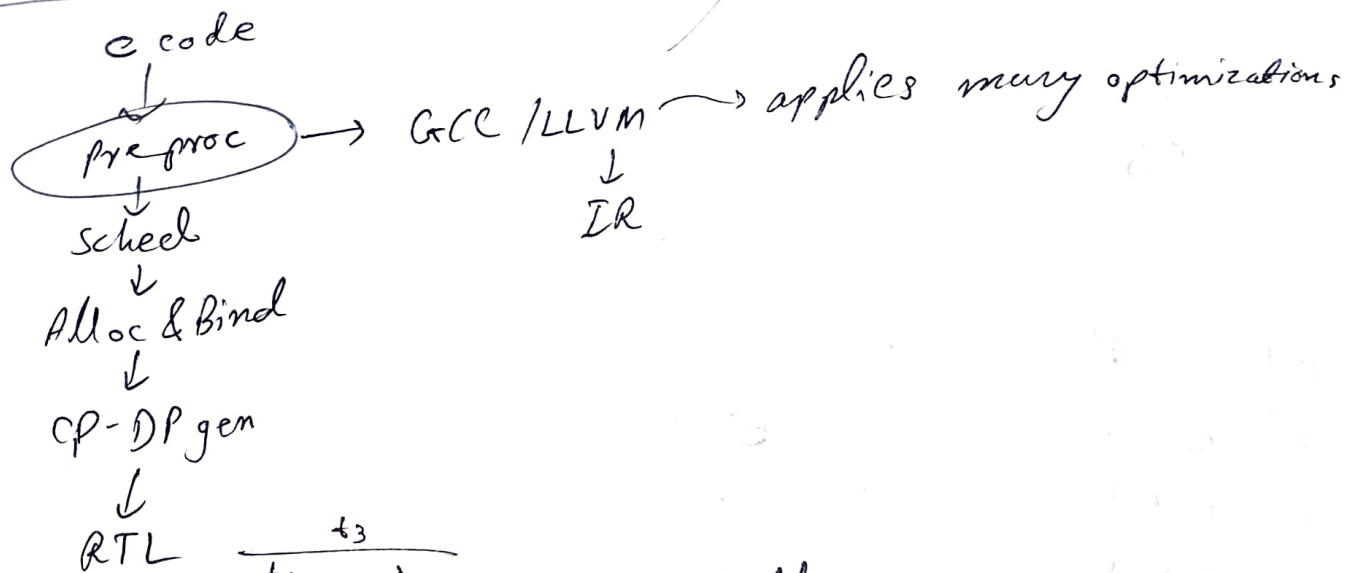 c code
Preproc → GCC / LLVM → applies many optimizations
↓
IR
↓
Sched
↓
Alloc & Bind
↓
CP-DP gen
↓
RTL
t3